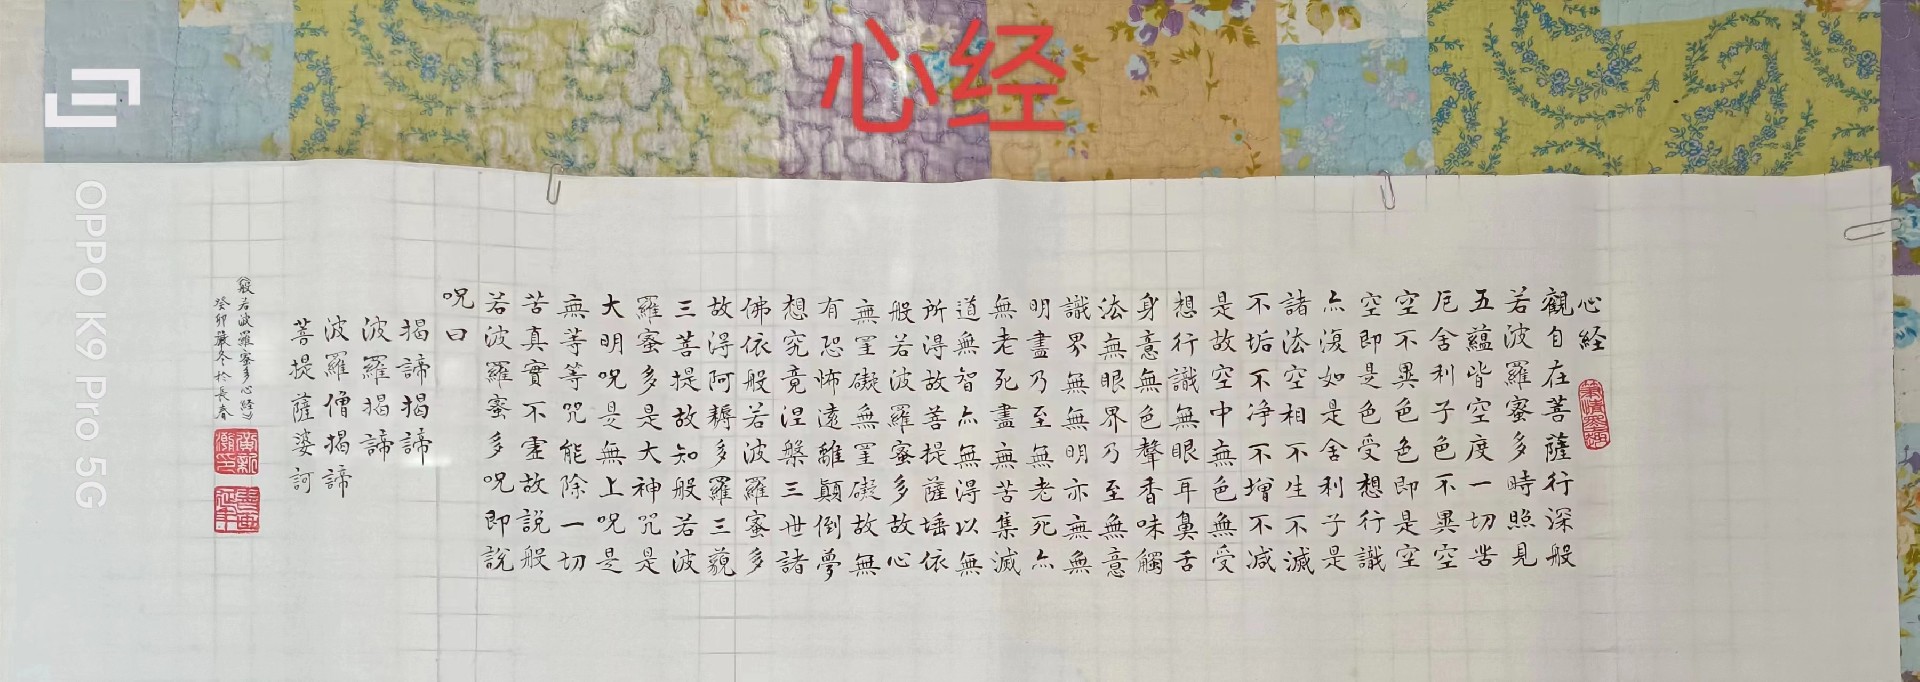 心经
OPPO K9 Pro 5G
心経
觀自在菩薩行深般
若波羅蜜多時照見
五蘊皆空度一切苦
厄舍利子色不異空
空不異色色即是空
空即是色受想行識
亦復如是舍利子是
諸法空相不生不滅
不垢不净不增不减
是故空中無色無受
想行識無眼耳鼻舌
身意無色聲香味觸
法無眼界乃至無意
識界無無明亦無無
明盡乃至無老死亦
無老死盡無苦集滅
道無智亦無得以無
所得故菩提薩埵依
般若波羅蜜多故心
無罣礙無罣礙故無
有恐怖遠離顛倒夢
想究竟涅槃三世諸
佛依般若波羅蜜多
故得阿耨多羅三藐
三菩提故知般若波
羅蜜多是大神咒是
大明咒是無上咒是
無等等咒能除一切
苦真實不虛故說般
若波羅蜜多咒即說
咒曰
揭諦揭諦
波羅揭諦
波羅僧揭諦
菩提薩婆訶
《般若波羅蜜多心経》
癸卯嚴冬於長春